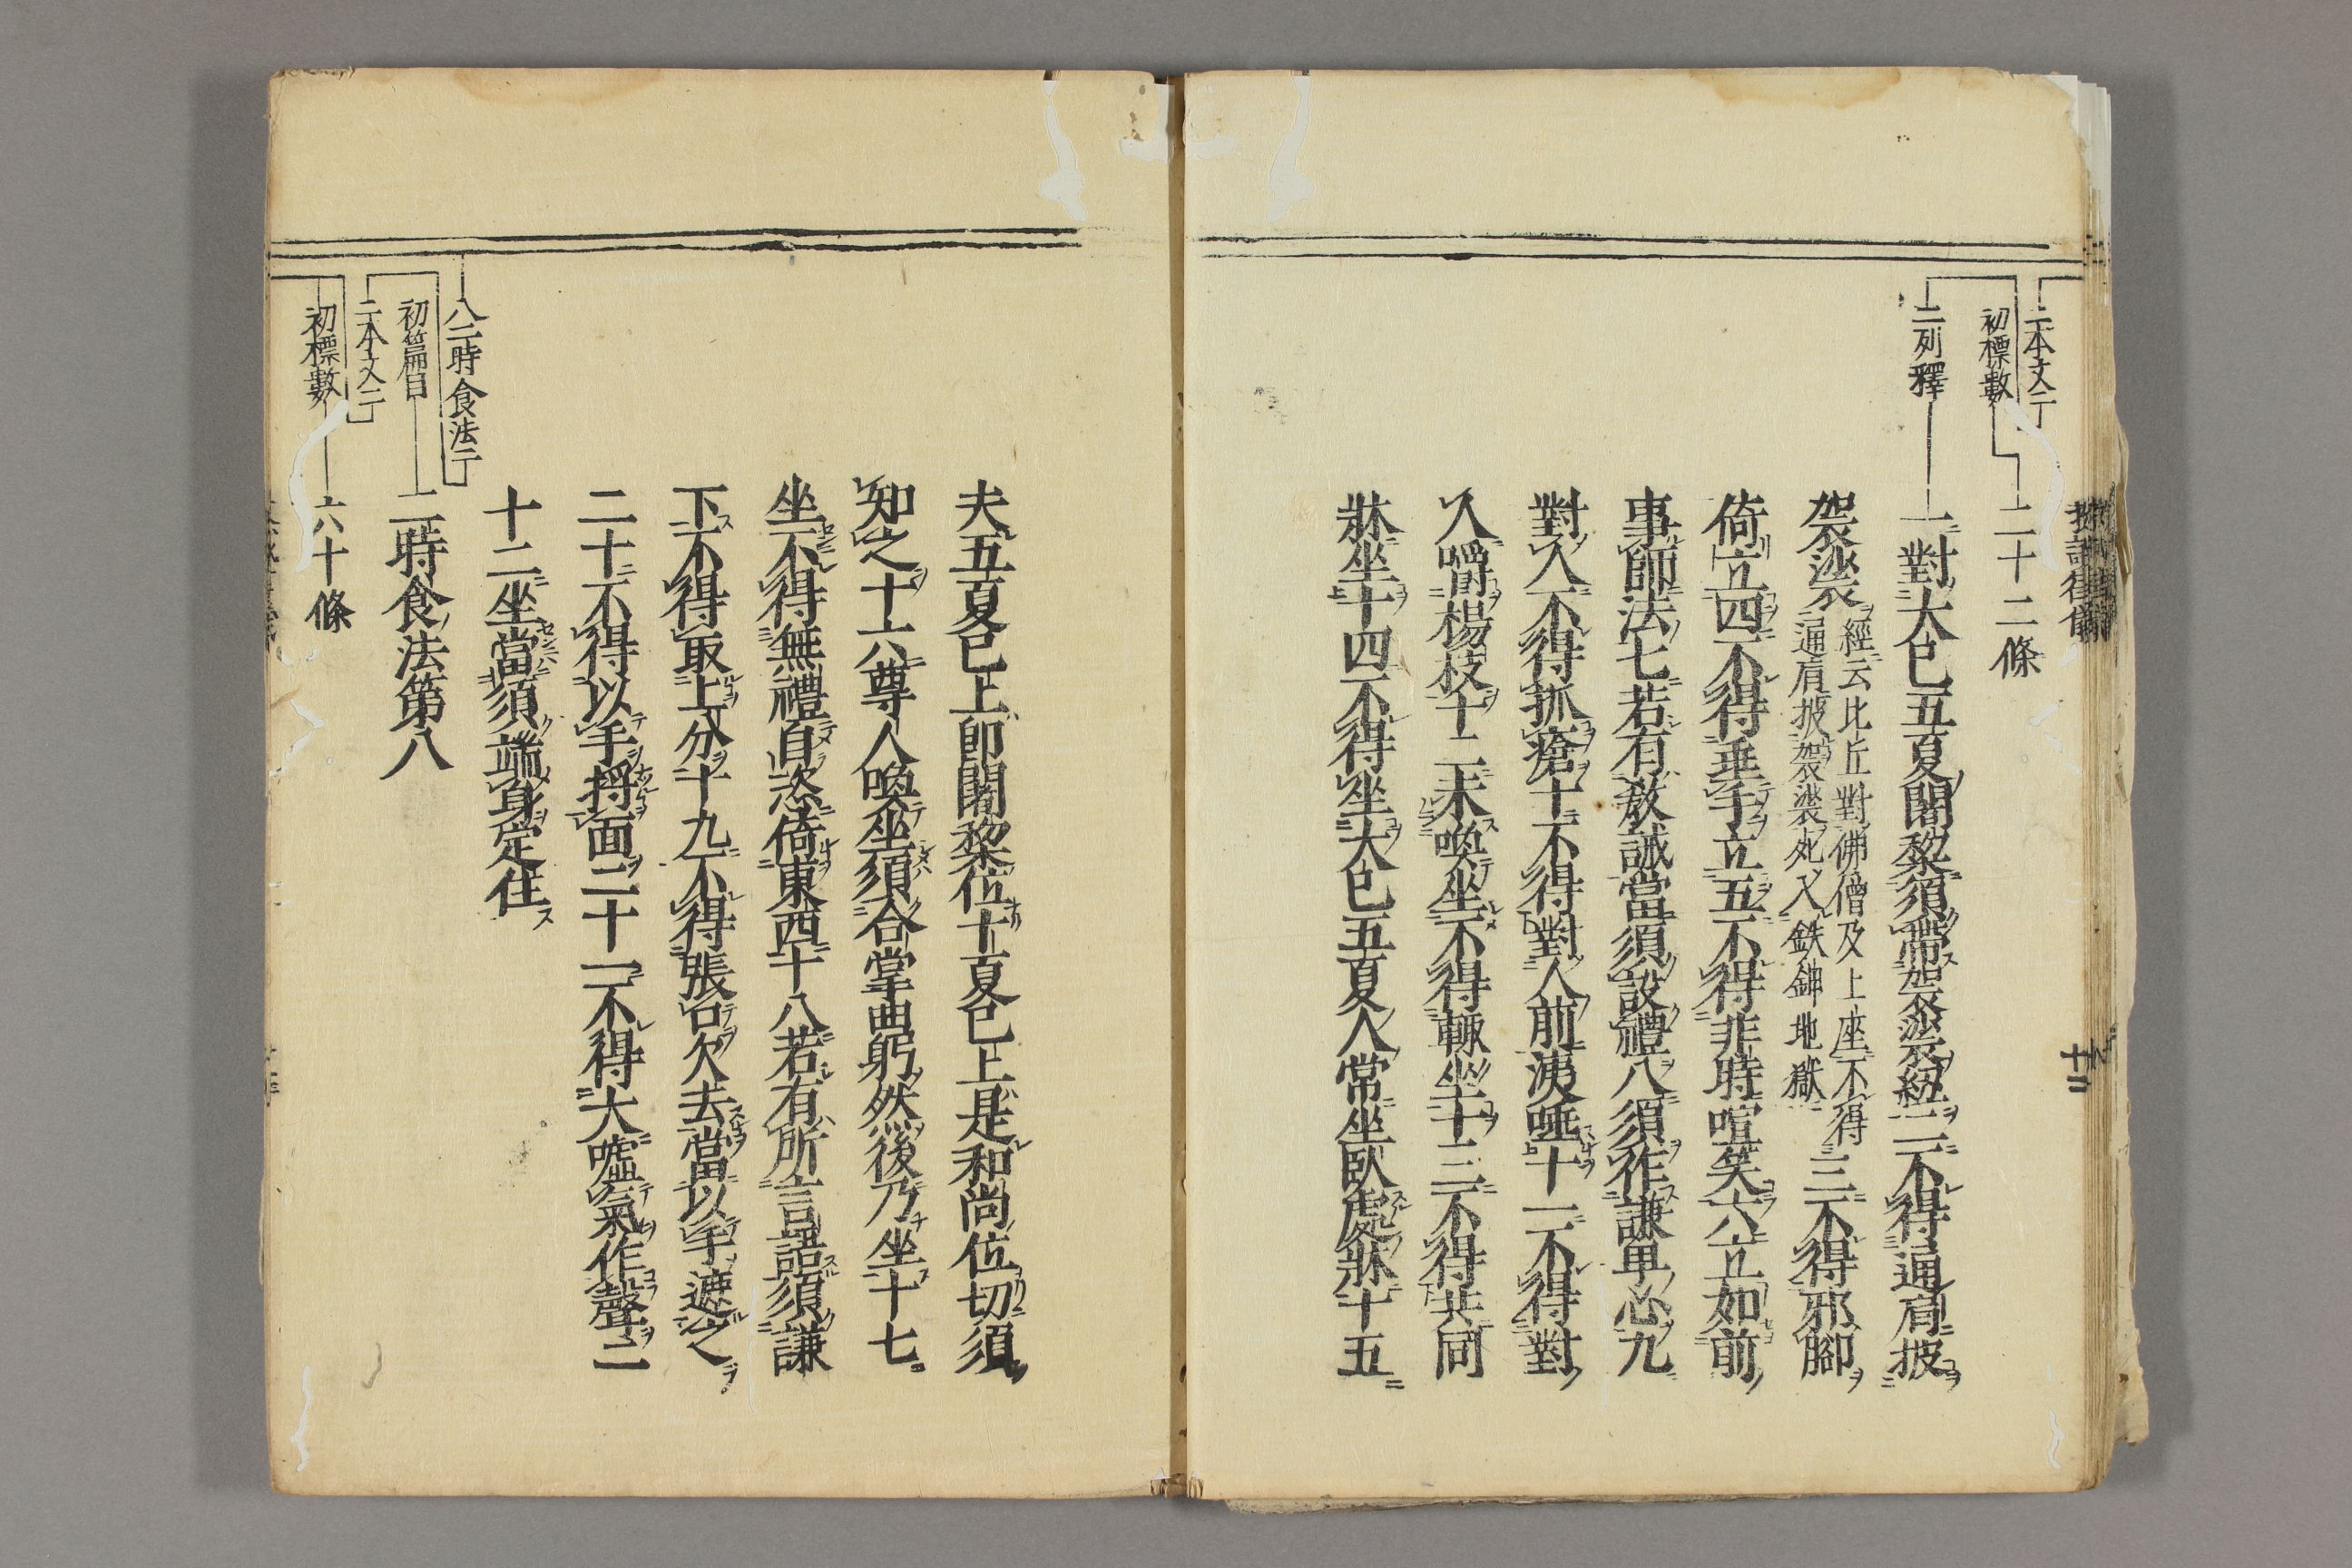 二本文二
初標數
二十二條
二列釋
一對大已五夏闍黎須帶袈裟紐二不得通肩披
袈裟經云比丘對佛僧及上座不得
通肩披袈裟死入鉄鉀地獄三不得邪腳
倚立四不得垂手立五不得非時喧笑六立如前
事師法七若有教誡當須設禮八須作謙卑心九
對人不得抓瘡十不得對人前洟唾十一不得對
人嚼楊枝十二未喚坐不得輙坐十三不得共同
牀坐十四不得坐大已五夏人常坐臥處牀十五
夫五夏已上即闍黎位十夏已上是和尚位切須
知之十六尊人喚坐須合掌曲躬然後乃坐十七
坐不得無禮自恣倚東西十八若有所言語須謙
下不得取上分十九不得張口欠去當以手遮之
二十不得以手捋面二十一不得大噓氣作聲二
十二坐當須端身定住
八二時食法二
初篇目
二時食法第八
二本文二
初標數
六十條